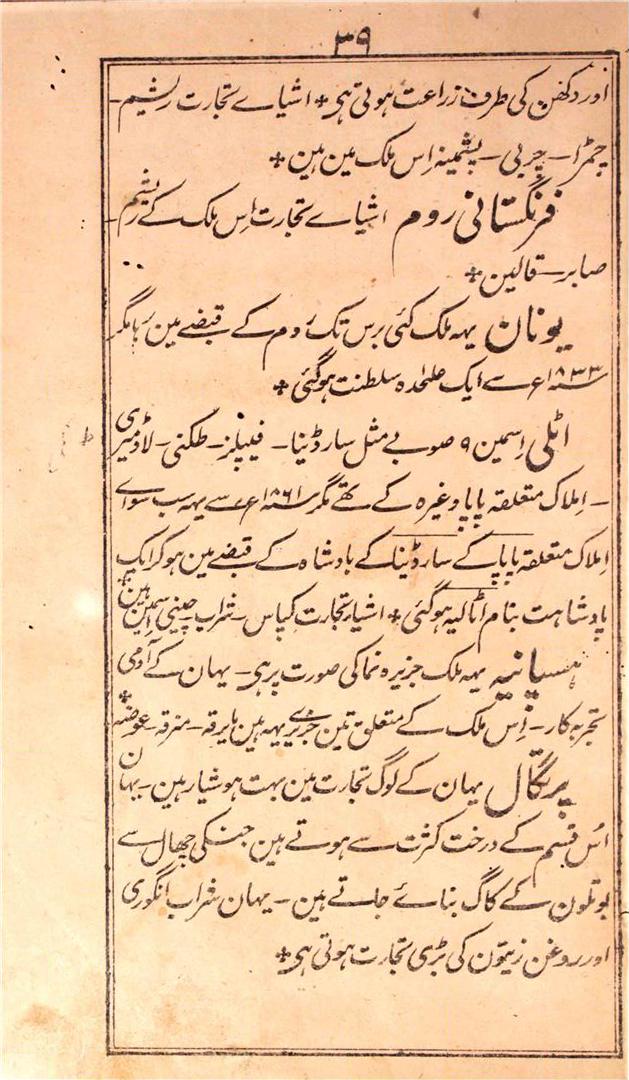 ۳۹
اور دکھن کی طرف زراعت ہوتی ہی + اشیاے تجارت ریشیم -
چمڑا - چربی - پشمینہ اِس ملک مین ہین +
فرنگستانی روم اشیاے تجارت اِس ملک کے ریشیم -
صابر - قالین +
یونان یہہ ملک کئی برس تک روم کے قبضے مین رہا مگر
سنہ ۱۸۳۳ ع سے ایک علحدہ سلطنت ہو گئی +
اٹلی اِسمین ۹ صوبے مثل سارڈینا - نیپلز - طکنی - لاڈمیری
- اِملاک متعلقہ پاپا وغیرہ کے تھے مگر سنہ ۱۸۶۱ ع سے یہہ سب سواے
اِملاک متعلقہ پاپا کے سارڈینا کے بادشاہ کے قبضے مین ہو کر ایک
پادشاہت بنام اٹالیہ ہو گئی + اشیاء تجارت کپاس - شراب - چینی اِسمین ہین +
ہسپانیہ یہہ ملک جزیرہ نما کی صورت پر ہی - یہان کے آدمی
تجربہ کار - اِس ملک کے متعلق تین جزیرے یہہ ہین مایرقہ - منرقہ - عوضہ +
پرتگال یہان کے لوگ تجارت مین بہت ہوشیار ہین - یہان
اُس قسم کے درخت کثرت سے ہوتے ہین جنکی چھال سے
بوتلون کے کاگ بناے جاتے ہین - یہان شراب انگوری
اور روغن زیتون کی بڑی تجارت ہوتی ہی +